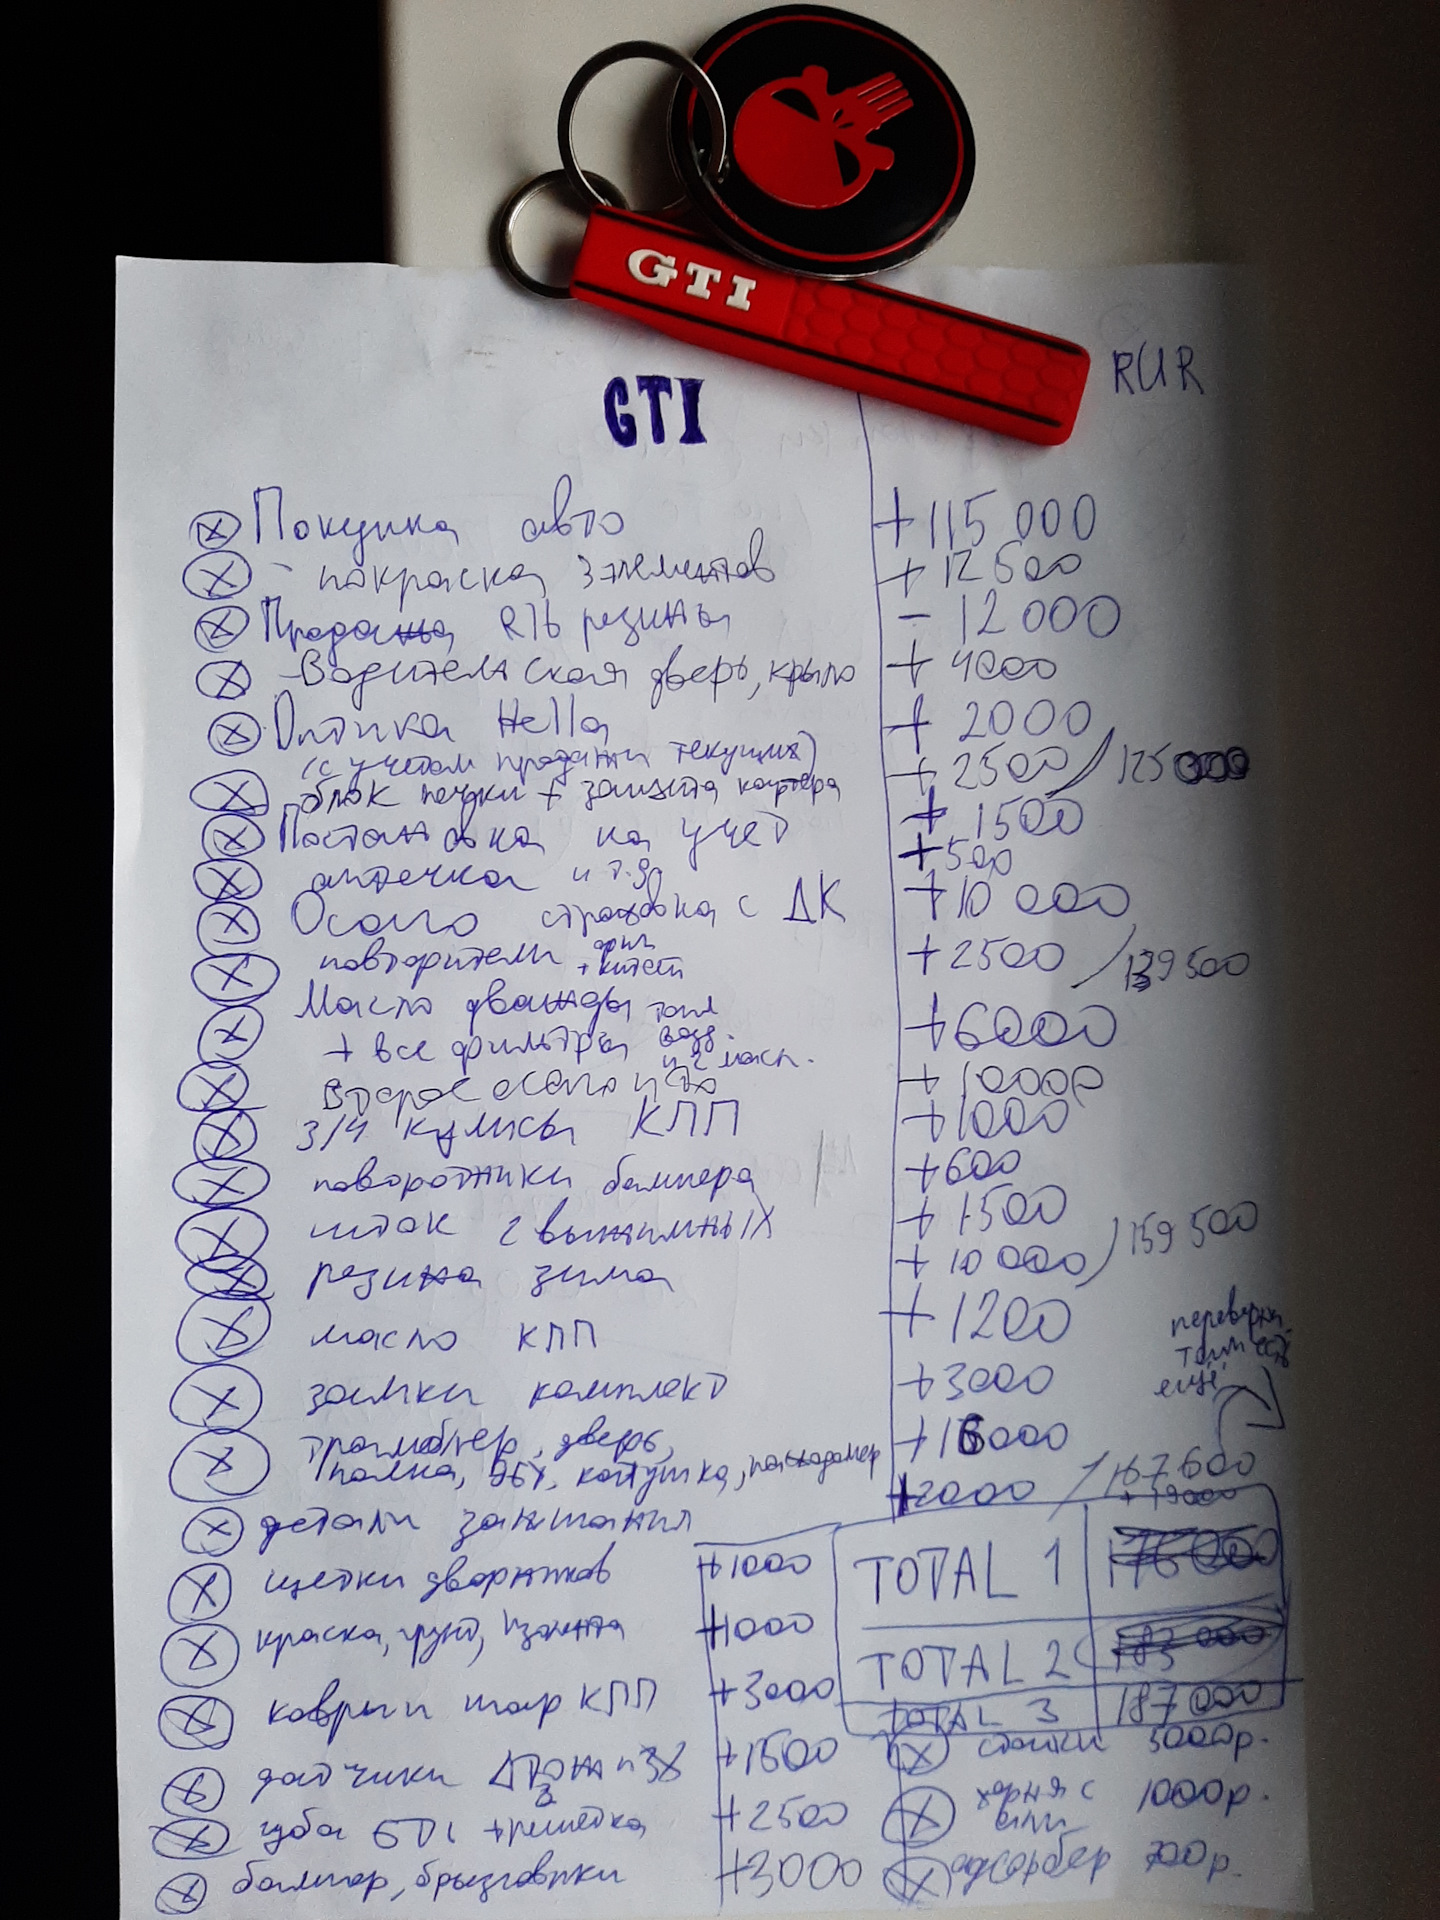 GTI
GTI
RUR
Покупка авто +115 000
- покраска элементов + 12500
Продажа R16 резины - 12 000
- Водительская дверь, крыло + 4000
Оптика Hella + 2000
(с учетом продажи текущих)
блок печки + защита картера + 2500 / 125000
Постановка на учет + 1500
аптечка и т.д. + 500
Осаго страховка с ДК +10 000
повторители + +2500 / 139500
Масло дважды топл +6000
+ все фильтры возд.
и 2 масл.
второе осаго и то +10000
3/4 кулисы КПП +1000
поворотники бампера +600
шток 2 выжимных + 1500
резина зима + 10 000 / 159 500
масло КПП + 1200
замки комплект +3000
перевертка
там есть
ещё
трамблер, дверь,
помпа, ЭБУ, катушка, расходомер
+2000 / 167600
+ 19000
детали зажигания
щетки дворников +1000
краска, грунт, +1000
ковры и шар КПП +3000
датчики +1500
губа GTI +решетка +2500
бампер, брызговики +3000
TOTAL 1 176 000
TOTAL 2 183 000
TOTAL 3 187 000
стойки 5000р.
1000р.
адсорбер